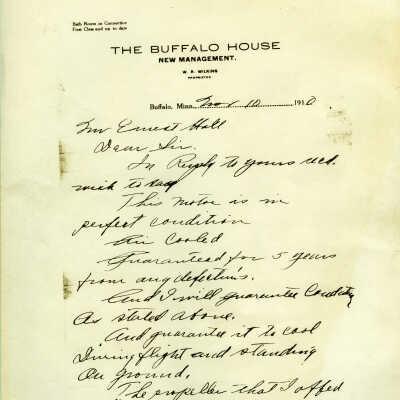 Bath Room in Connection
First Class and up to date
THE BUFFALO HOUSE
NEW MANAGEMENT.
W. R. WILKINS
PROPRIETOR
Buffalo, Minn., Nov 10 1910.
Mr Ernest Hall
Dear Sir.
In Reply to yours recd.
wish to say
This motor is in
perfect condition
Air Cooled
Guaranteed for 5 years
from any defections.
And I will guarantee Condition
As stated above.
And guarantee it to cool
During flight and standing
On ground.
The propeller that I offed